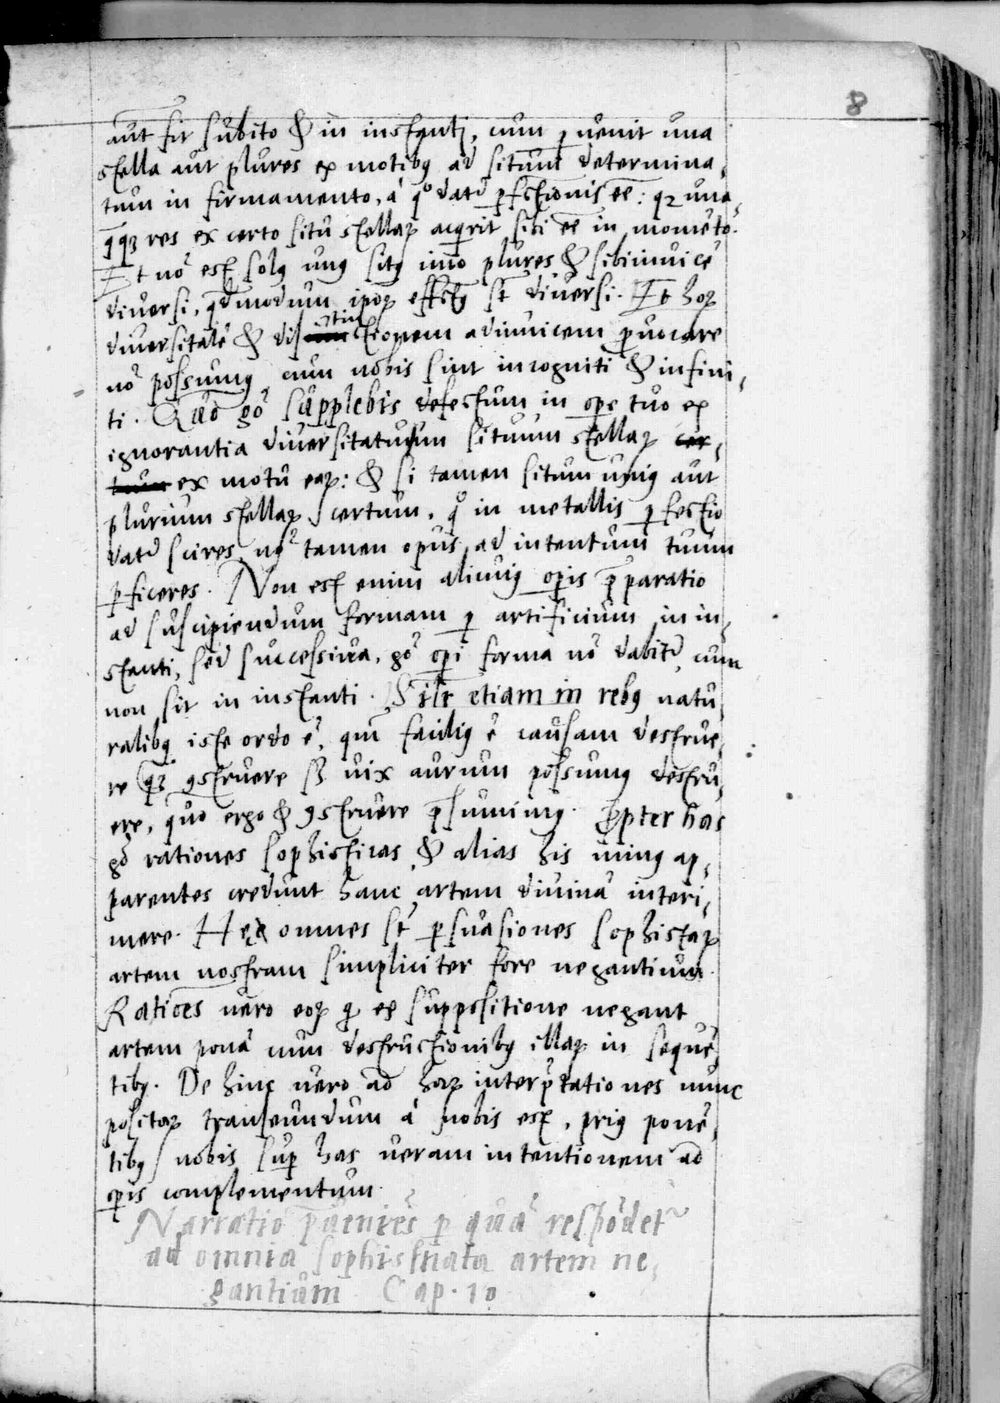 8
aut fit subito & in instanti, cum ꝑuenit una
stella aut plures ex motibꝰ ad situm determina,
tum in firmamento, á qͦ dat̃ ꝑfectionis eẽ: qꝛ una,
q̃qꝫ res ex certo situ stellaꝝ acq̃rit sibi eẽ in momẽto.
Et nõ est solꝰ unꝰ sitꝰ imo plures & sibiinuicẽ
diuersi, q̃dmodum ip̃oꝝ effectꝰ st̃ diuersi. Et haꝝ
diuersitatẽ & distinctionem adinuicem ꝑuocare
nõ possumꝰ, cum nobis sint incogniti & infini,
ti. Quõ gõ supplebis defectum in ope tuo ex
ignorantia diuersitatum situum stellaꝝ
ex motu eaꝝ: & si tamen situm unꝰ aut
plurium stellaꝝ certum, qͦ in metallis ꝑfectio
dat̃ scires, nõ tamen opus ad intentum tuum
ꝑficeres. Non est enim alicuiꝰ opis p̃paratio
ad suscipiendum formam ꝑ artificium in in,
stanti, sed successiua, gõ opi forma nõ dabit̃, cum
non sit in instanti. Silr etiam in rebꝰ natu
ralibꝰ iste ordo ẽ, qm̃ faciliꝰ ẽ causam destrue,
re qꝫ ꝯstruere sꝫ uix aurum possumꝰ destru,
ere, quõ ergo & ꝯstruere p̃sumimꝰ. Ꝓpter has
gõ rationes sophisticas & alias his minꝰ ap,
parentes credunt hanc artem diuinã interi,
mere. Hęc omnes st̃ ꝑsuasiones sophistaꝝ
artem nostram simpliciter fore negantium.
Ratiões uero eoꝝ q̃ ex suppositione negant
artem ponã cum destructionibꝰ illaꝝ in sequẽ,
tibꝰ. De hinc uero ad haꝝ interp̃tationes nunc
positaꝝ transeundum á nobis est, priꝰ ponẽ,
tibꝰ nobis sup has ueram intentionem ad
opis complementum.
Narratio p̃ueniẽs ꝑ quã respõdet̃
ad omnia sophismata artem ne,
gantium. Cap. 10